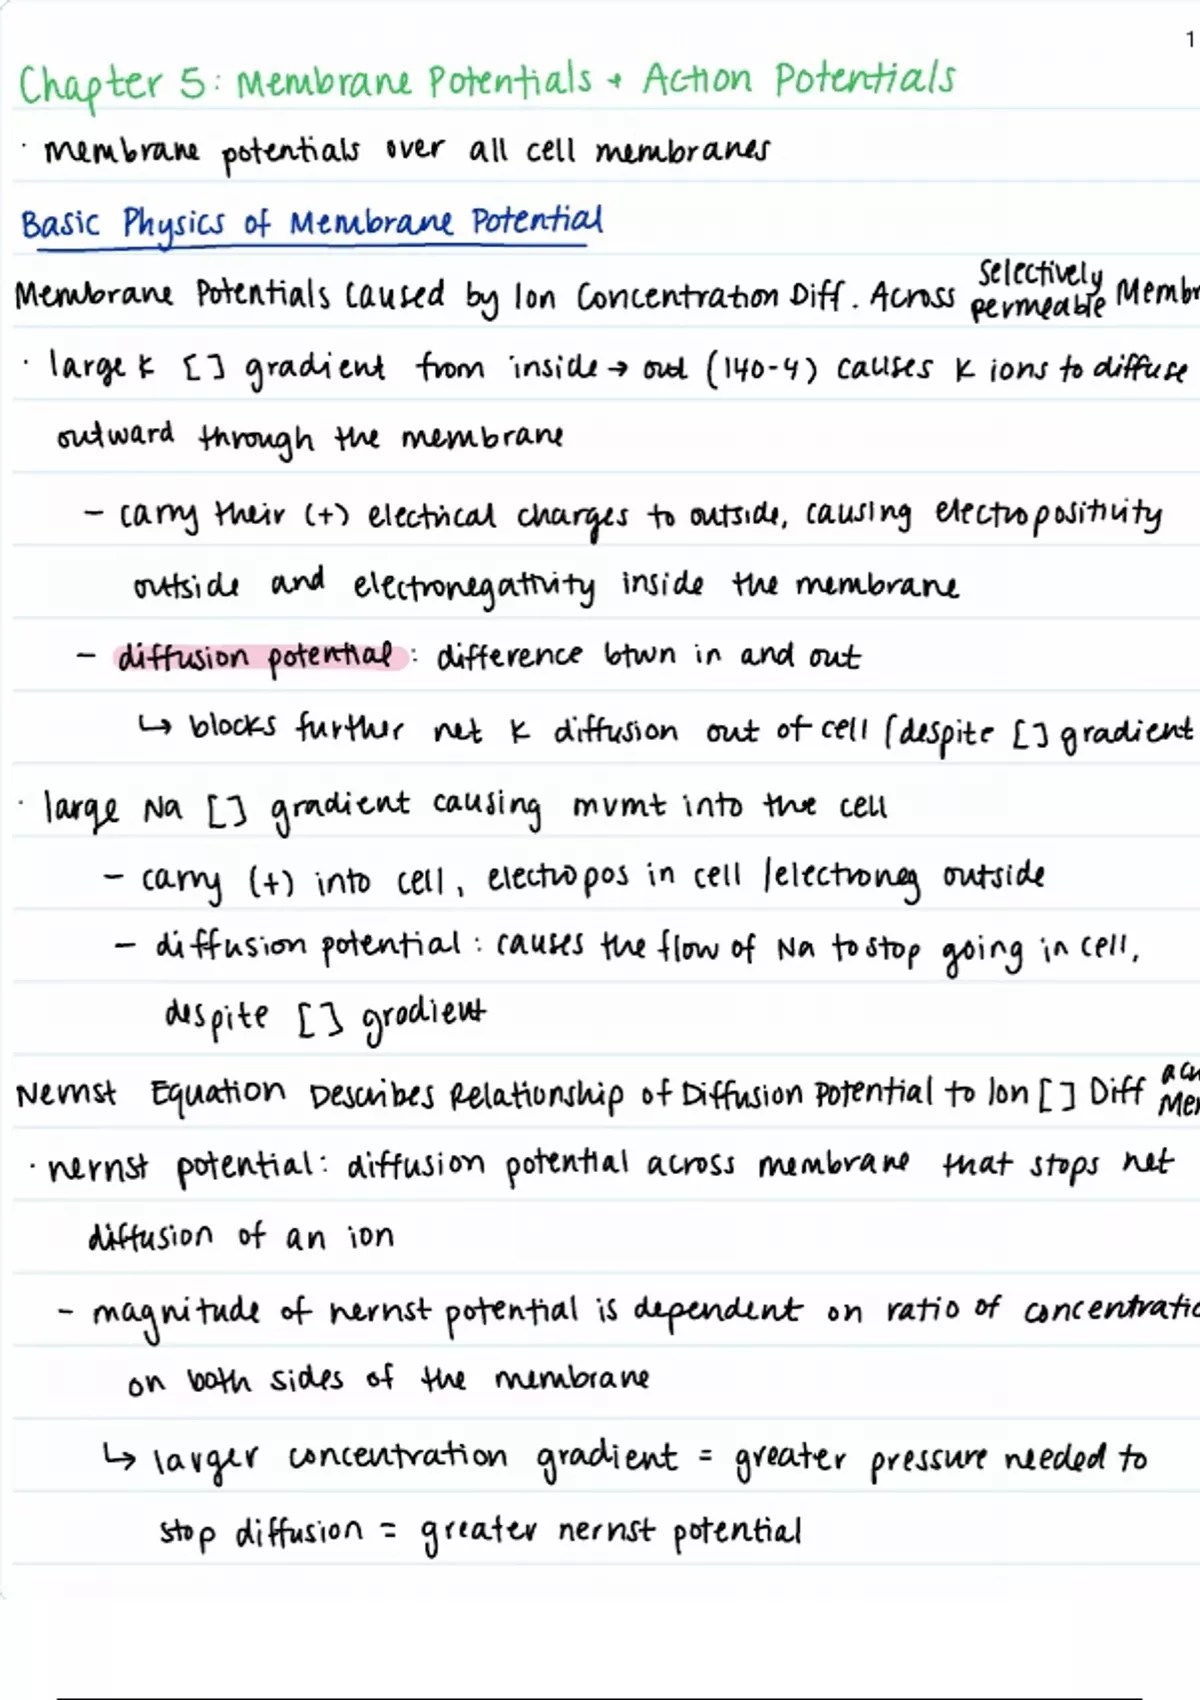 1
Chapter 5: Membrane Potentials + Action Potentials
· membrane potentials over all cell membranes
Basic Physics of Membrane Potential
Membrane Potentials Caused by Ion Concentration Diff. Across Selectively permeable Membr
· large K [] gradient from inside → out (140-4) causes K ions to diffuse
outward through the membrane
- carry their (+) electrical charges to outside, causing electropositivity
outside and electronegativity inside the membrane
- diffusion potential: difference btwn in and out
↳ blocks further net K diffusion out of cell (despite [] gradient
· large Na [] gradient causing mvmt into the cell
- carry (+) into cell, electropos in cell /electroneg outside
- diffusion potential: causes the flow of Na to stop going in cell,
despite [] gradient
Nernst Equation Describes Relationship of Diffusion Potential to Ion [] Diff
· nernst potential: diffusion potential across membrane that stops net
diffusion of an ion
- magnitude of nernst potential is dependent on ratio of concentratio
on both sides of the membrane
↳ larger concentration gradient = greater pressure needed to
stop diffusion = greater nernst potential